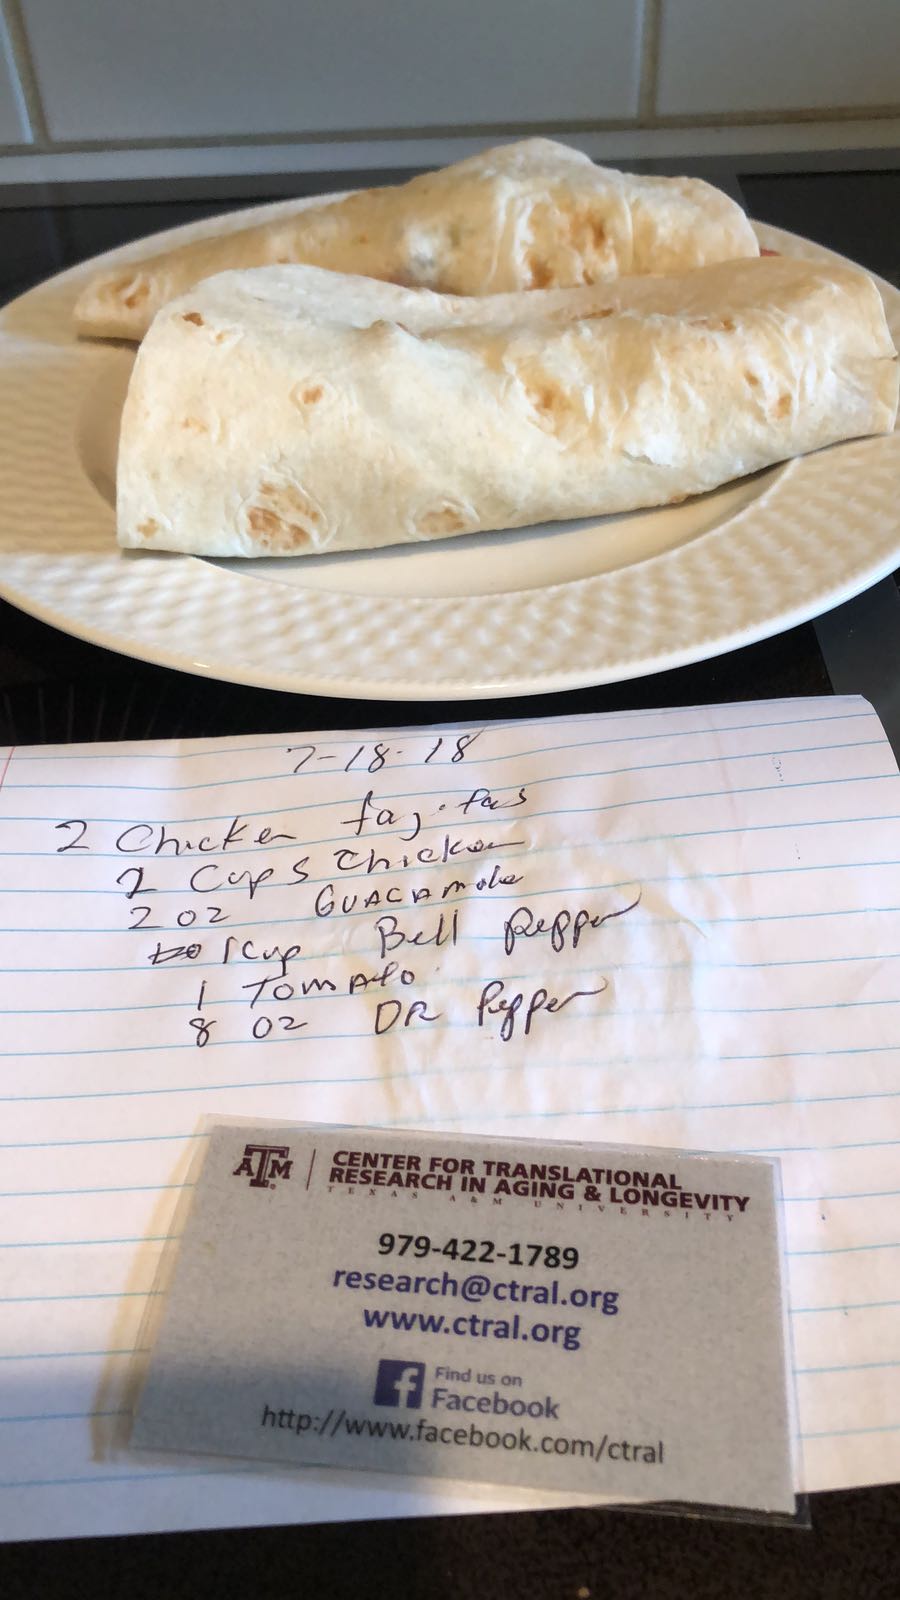 7-18-18
2 Chicken fajitas
2 Cups Chicken
2 oz Guacamole
1 Cup Bell Pepper
1 Tomato
8 oz DR Pepper
ATM | CENTER FOR TRANSLATIONAL
RESEARCH IN AGING & LONGEVITY
TEXAS A&M UNIVERSITY
979-422-1789
research@ctral.org
www.ctral.org
f Find us on
Facebook
http://www.facebook.com/ctral